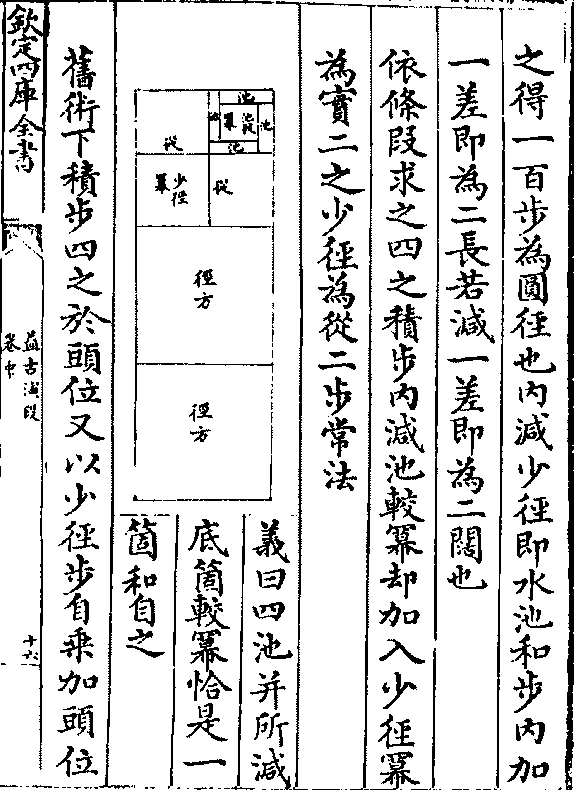 之得一百步為圓徑也内減少徑即水池和步内加
一差即為二長若減一差即為二闊也
依條段求之四之積步内減池較冪却加入少徑冪
為實二之少徑為從二步常法
池
池
池較
冪
池
池
從
從
少徑
冪
徑方
徑方
義曰四池并所減
底箇較冪恰是一
箇和自之
舊術下積步四之於頭位又以少徑步自乘加頭位
欽定四庫全書
益古演段
卷中
十六